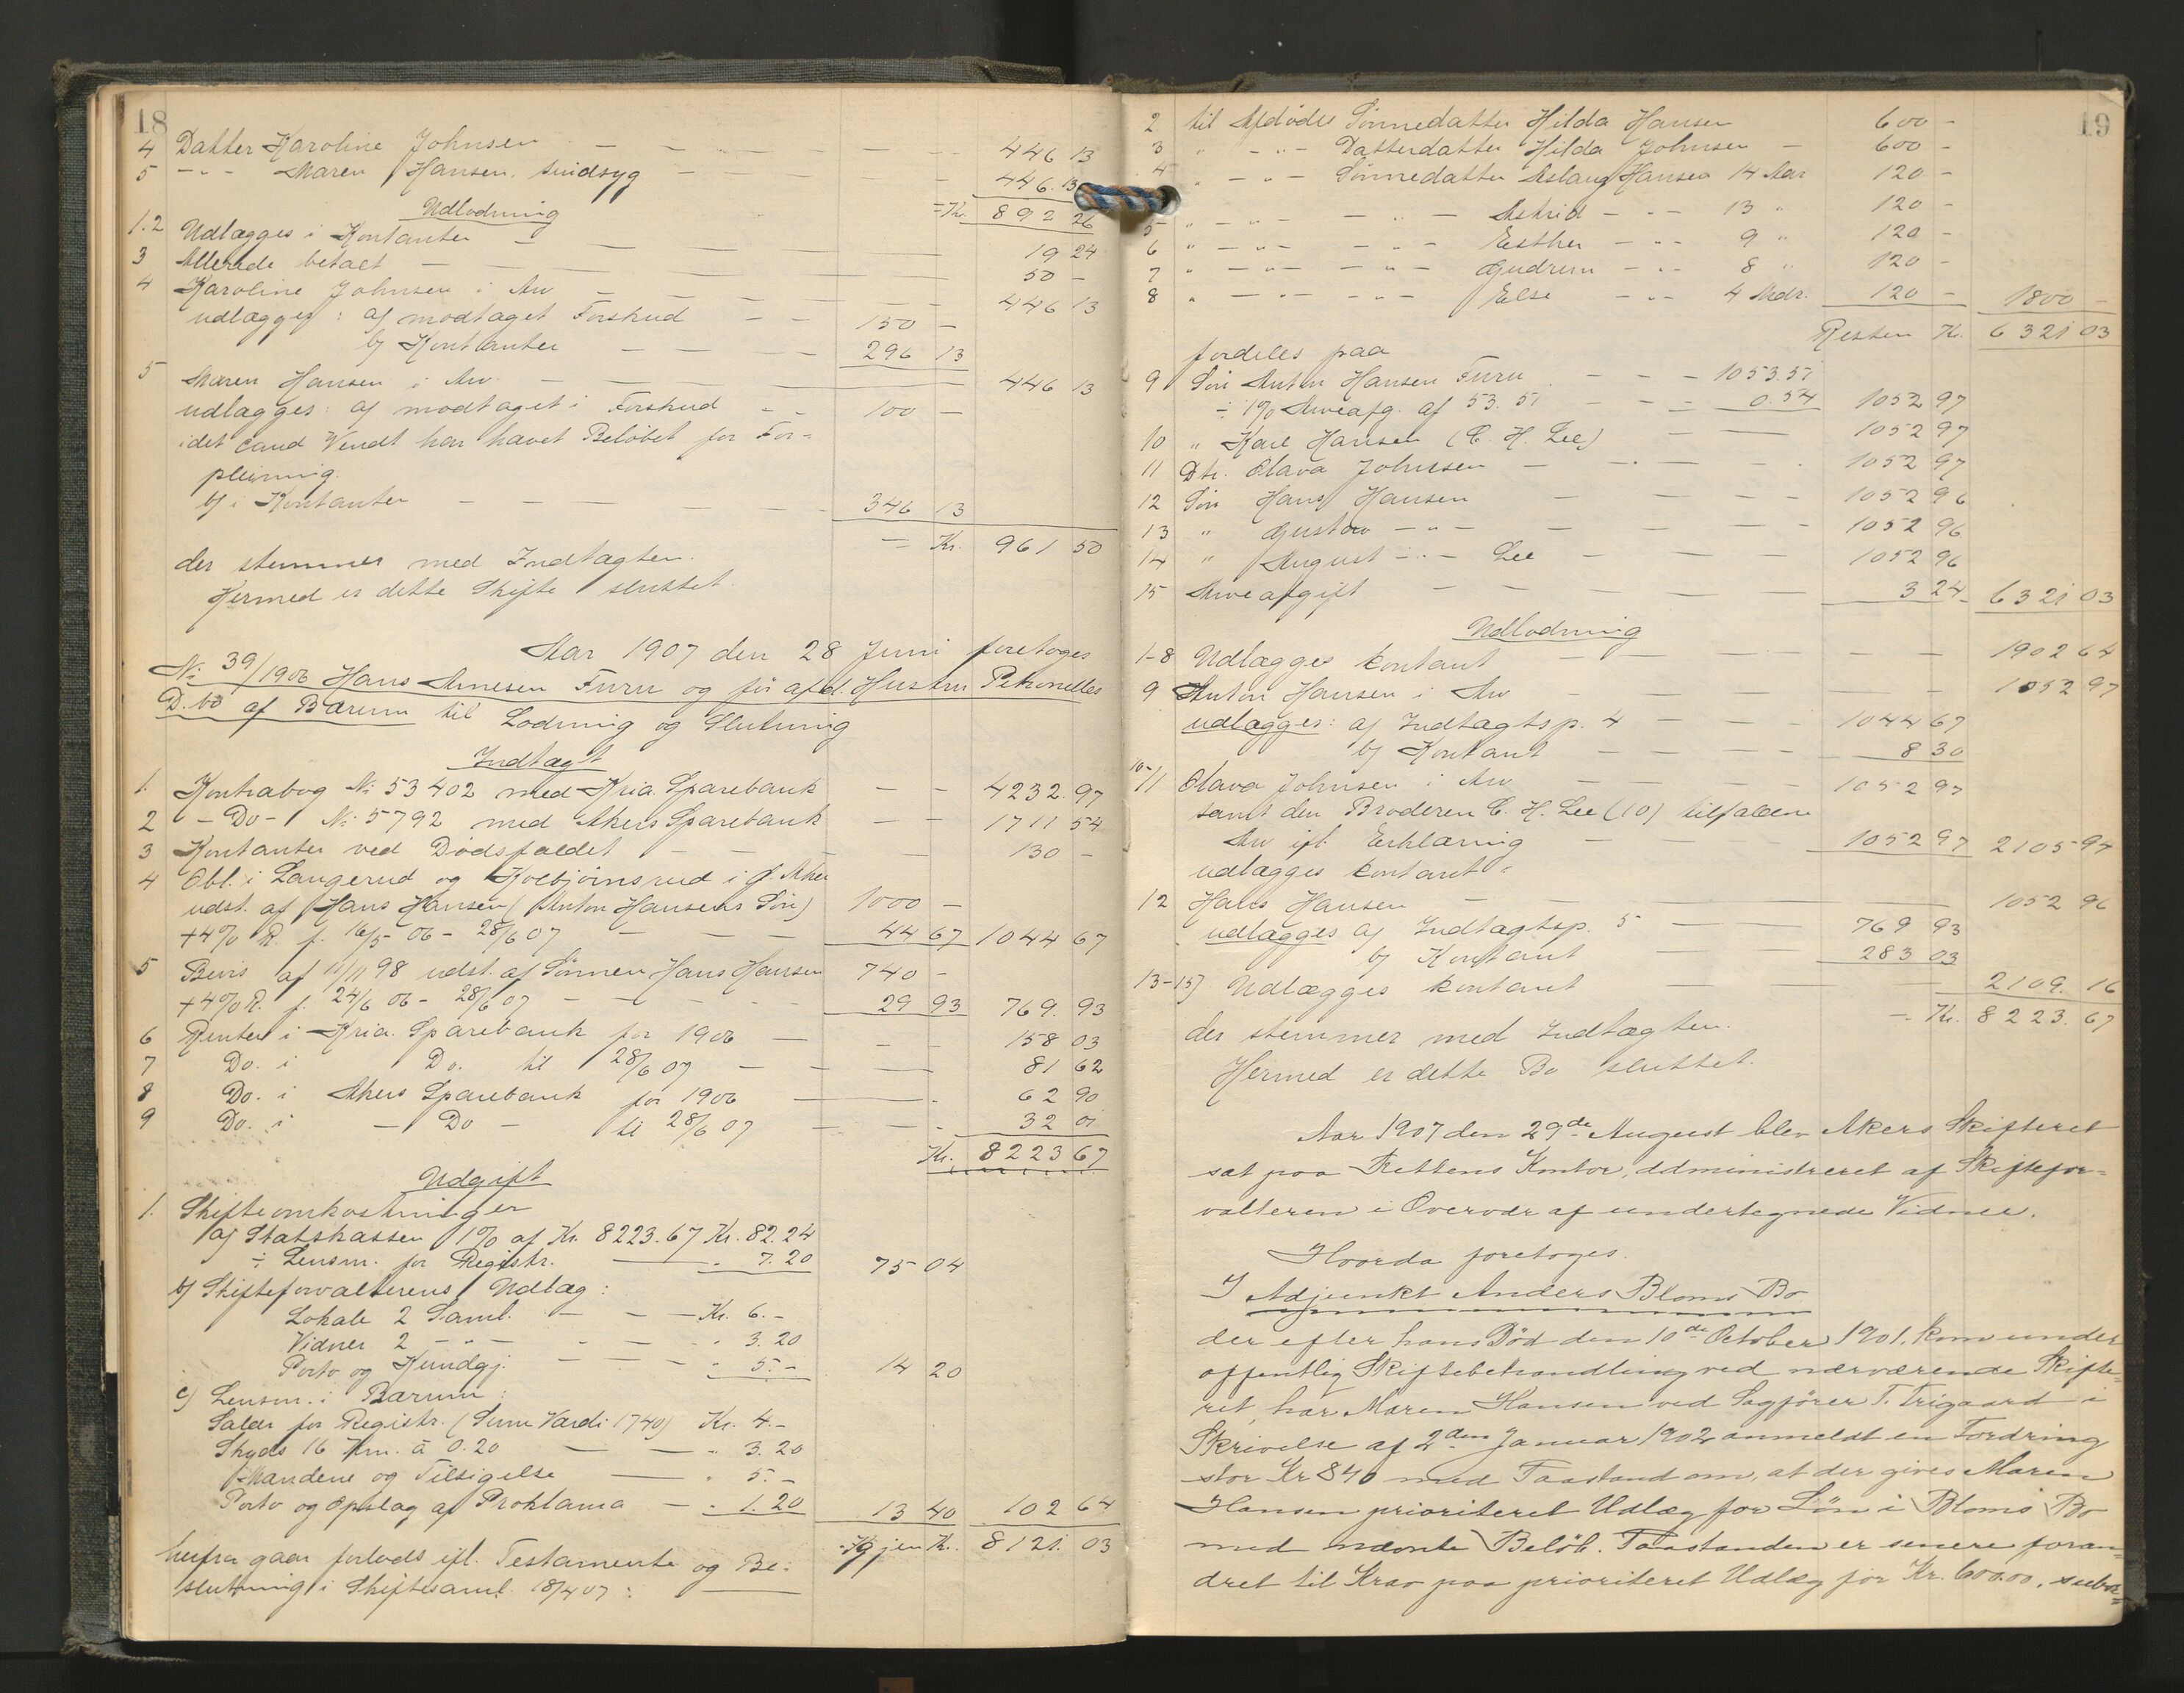 18
4 Datter Karoline Johnsen — — — — — — 446 13
5 -"- Maren Hansen, sindsyg — — — — — 446.13
Udlodning = Kr. 892 26
1.2 Udlægges i Kontanter — — — — 19 24
3 Allerede betalt — — — — 50 -
4 Karoline Johnsen i Arv — — — 446 13
udlægges: a) modtaget Forskud — — 150 -
b) Kontanter — — — 296 13
5 Maren Hansen i Arv — — — 446 13
udlægges: a) modtaget i Forskud - - 100 -
idet Cand Wendt har hævet Beløbet for For-
pleining.
b) i Kontanter — — — — 346 13
= Kr. 961 50
der stemmer med Indtægten.
Hermed er dette Skifte sluttet.
Aar 1907 den 28 Juni foretoges
No 39/1906 Hans Arnesen Furu og før afd. Hustru Petronelles
D.bo af Bærum til Lodning og Slutning
Indtægt
1. Kontrabog No 53402 med Kria. Sparebank — — 4232.97
2 - Do - No 5792 med Akers Sparebank — — 1711 54
3 Kontanter ved Dødsfaldet — — — 130 -
4 Obl. i Langerud og Kolbjørnsrud i f. Aker
udst. af Hans Hansen (Anton Hansens Søn) 1000 -
+4% R. f. 16/5 06 - 28/6 07 — — 44 67 1044 67
5 Bevis af 11/11 98 udst. af Sønnen Hans Hansen 740 -
+4% R. f. 24/6 06 - 28/6 07 — — — 29 93 769.93
6 Renter i Kria. Sparebank for 1906 — — — 158 03
7 Do. i Do. til 28/6 07 — — — 81 62
8 Do. i Akers Sparebank for 1906 — — 62 90
9 Do. i — Do — til 28/6 07 — — — 32 01
Kr. 8223 67
Udgift
1. Skifteomkostninger
a) Statskassen 1% af Kr. 8223.67 Kr. 82.24
÷ Lensm. for Registr. — " 7.20 75 04
b) Skifteforvalterens Udlæg:
Lokale 2 Saml. — — — Kr. 6.-
Vidner 2 - " - — — " 3.20
Porto og Kundgj. — — — " 5.- 14 20
c) Lensm. i Bærum:
Salær for Registr. (Sum Værdi 1740) Kr. 4.-
Skyds 16 Km. á 0.20 — — " 3.20
Mændene og Tilsigelse — " 5.-
Porto og Opslag af Proklama — " 1.20 13 40 102 64
Igjen Kr. 8121.03
herfra gaar forlods ifl. Testamente og Be-
slutning i Skiftesaml. 18/4 07: —
19
2 til Afdødes Sønnedatter Hilda Hansen 600 -
3 " - " - Datterdatter Hilda Johnsen — 600 -
4 " - " - Sønnedatter Aslaug Hansen 14 Aar 120 -
5 " - " - — " — Astrid - " - 13 " 120 -
6 " - " - — " — Esther - " - 9 " 120 -
7 " - " - — " — Gudrun - " - 8 " 120 -
8 " - " - — " — Else - " - 4 Mdr. 120 - 1800 -
Resten Kr. 6321 03
fordeles paa
9 Søn Anton Hansen Furu — — — 1053.51
÷ 1% Arveafg. af 53.51 — — 0.54 1052 97
10 " Karl Hansen (C. H. Lee) — — 1052 97
11 Dtr. Olava Johnsen — — — 1052 97
12 Søn Hans Hansen — — — 1052 96
13 " Gustav - " - — — — 1052 96
14 " August - " - Lee — — — 1052 96
15 Arveafgift — — — — 3 24 6321 03
Udlodning
1-8 Udlægges kontant — — — — 1902 64
9 Anton Hansen i Arv — — 1052 97
udlægges: a) Indtægtsp. 4 — — — 1044 67
b) Kontant — — — 8 30
10-11 Olava Johnsen i Arv — — — 1052 97
samt den Broderen C. H. Lee (10) tilfaldne
Arv ifl. Erklæring — — 1052 97 2105 94
udlægges kontant.
12 Hans Hansen — — — 1052 96
udlægges a) Indtægtsp. 5 — — 769 93
b) Kontant — 283 03
13-15) Udlægges kontant — — 2109.16
= Kr. 8223.67
der stemmer med Indtægten.
Hermed er dette Bo sluttet.
Aar 1907 den 29de August blev Akers Skifteret
sat paa Rettens Kontor, administreret af Skiftefor-
valteren i Overvær af undertegnede Vidner.
Hvorda foretoges.
I Adjunkt Anders Bloms Bo
der efter hans Død den 10de October 1901. kom under
offentlig Skiftebehandling ved nærværende Skifte-
ret, har Maren Hansen ved Sagfører T. Trigaard i
Skrivelse af 2den Januar 1902 anmeldt en Fordring
stor Kr 840 med Paastand om, at der gives Maren
Hansen prioriteret Udlæg for Løn i Bloms Bo
med nævnte Beløb. Paastanden er senere foran-
dret til Krav paa prioriteret Udlæg for Kr. 600.00, subsi-